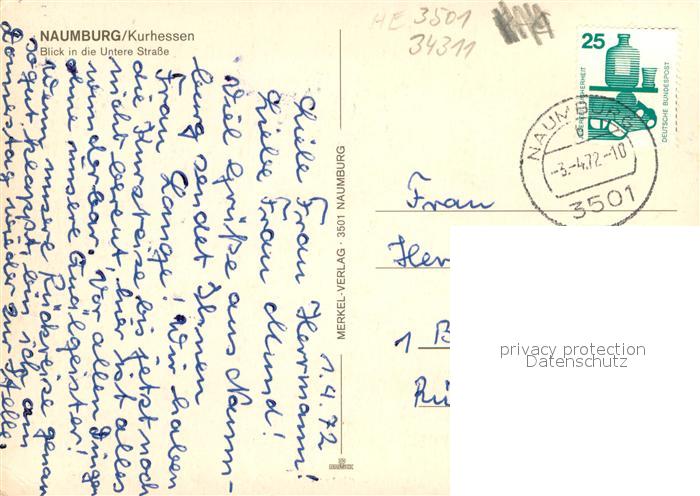 NAUMBURG/Kurhessen
Blick in die Untere Straße
1.4.72
Liebe Frau Herrmann!
Liebe Frau Mund!
Viel Grüße aus Naum-
burg sendet Ihnen
Frau Lange! Wir haben
die Kurreise bis jetzt noch
nicht bereut, hier ist alles
wunderbar. Vor allen Dingen
ohne unsere Quälgeister!
Wenn unsere Rückreise genau
so gut klappt, bin ich am
Donnerstag wieder zur Stelle.
MERKEL-VERLAG · 3501 NAUMBURG
HE 3501
34311
25
DEUTSCHE BUNDESPOST
NAUMBURG
-3.-4.72-10
3501
Frau
Her
1 B
Rü
privacy protection
Datenschutz